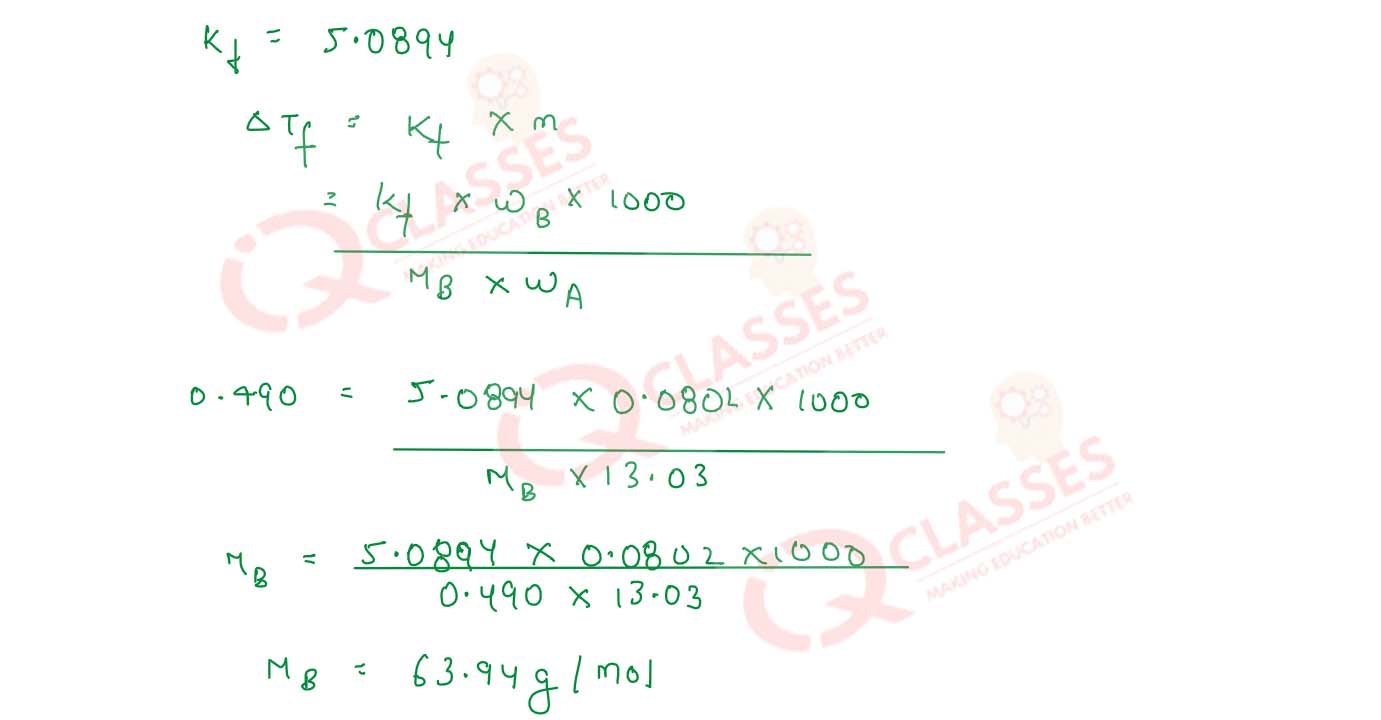 Kf = 5.0894
ΔTf = Kf × m
= Kf × wB × 1000
MB × wA
0.490 = 5.0894 × 0.0802 × 1000
MB × 13.03
MB = 5.0894 × 0.0802 × 1000
0.490 × 13.03
MB = 63.94 g / mol
IQ CLASSES
MAKING EDUCATION BETTER
IQ CLASSES
MAKING EDUCATION BETTER
IQ CLASSES
MAKING EDUCATION BETTER